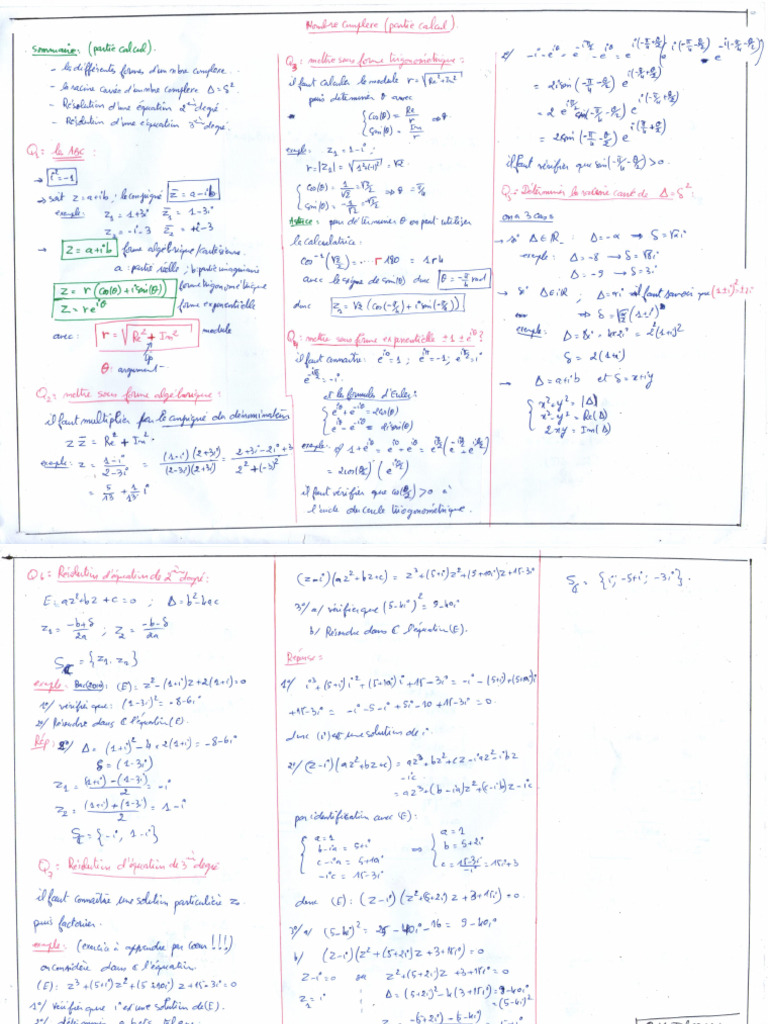 Nombre complexe (partie calcul).
Sommaire: (partie calcul).
- les différentes forme d'un nbre complexe.
- la racine carrée d'un nbre complexe Δ = δ²
- Résolution d'une équation 2ème degré.
- Résolution d'une équation 3ème degré.
Q1: les ABC:
→ i² = -1
→ soit z = a+ib; le conjugué z̄ = a-ib
exemple: z1 = 1+3i z̄1 = 1-3i
z2 = -i-3 z̄2 = +i-3
→ z = a+ib forme algébrique/cartésienne.
a: partie réelle; b: partie imaginaire
z = r(cos(θ)+i sin(θ)) forme trigonométrique
z = r e^iθ forme exponentielle
avec: r = √(Re²+Im²) module
θ: argument
Q2: mettre sous forme algébrique:
il faut multiplier par le conjugué du dénominateur
z z̄ = Re² + Im².
exemple: z = (1-i)/(2-3i) = (1-i)(2+3i)/(2-3i)(2+3i) = (2+3i-2i+3)/(2²+(-3)²)
= 5/13 + 1/13 i
Q3: mettre sous forme trigonométrique:
il faut calculer le module r = √(Re²+Im²)
puis déterminer θ avec
{ cos(θ) = Re/r
sin(θ) = Im/r ⇒ θ
exemple: z1 = 1-i;
r = |z1| = √(1²+(-1)²) = √2
{ cos(θ) = 1/√2 = √2/2
sin(θ) = -1/√2 = -√2/2 ⇒ θ =
Astuce: pour déterminer θ on peut utiliser
la calculatrice:
avec le signe de sin(θ) donc θ = -π/4 rad
donc z1 = √2 (cos(-π/4) + i sin(-π/4))
Q4: mettre sous forme exponentielle ±1±e^iθ?
il faut connaitre: e^i0 = 1; e^iπ = -1; e^iπ/2 = i
e^-iπ/2 = -i.
et la formule d'Euler:
{ e^iθ + e^-iθ = 2cos(θ)
e^iθ - e^-iθ = 2i sin(θ)
exemple: 1+e^iθ = e^i0 + e^iθ = e^iθ/2 (e^-iθ/2 + e^iθ/2)
= 2cos(θ/2) (e^iθ/2)
il faut vérifier que cos(θ/2) > 0 à
l'aide du cercle trigonométrique.
= 2i sin(-π/4-θ/2) e^i(-π/4+θ/2)
= 2 e^iπ/2 sin(-π/4-θ/2) e^i(-π/4+θ/2)
= 2 sin(-π/4-θ/2) e^i(π/4+θ/2)
il faut vérifier que sin(-π/4-θ/2) > 0.
Q5: Déterminer la racine carré de Δ = δ²:
on a 3 cas
→ si Δ ∈ ℝ-; Δ = -a → δ = √a i
exemple: Δ = -8 → δ = √8 i
Δ = -9 → δ = 3i
→ si Δ ∈ iℝ; Δ = ai il faut savoir que (1±i)² = ±2i
exemple: Δ = 8i = 4×2i = 2²(1+i)²
δ = 2(1+i)
→ Δ = a+ib et δ = x+iy
{ x²+y² = |Δ|
x²-y² = Re(Δ)
2xy = Im(Δ)
Q6: Résolution d'équation de 2ème degré:
E: az²+bz+c = 0; Δ = b²-4ac
z1 = (-b+δ)/2a; z2 = (-b-δ)/2a
Sℂ = {z1, z2}
exemple: (E): z²-(1+i)z+2(1+i) = 0
1°/ vérifie que: (1-3i)² = -8-6i
2°/ Résoudre dans ℂ l'équation (E).
Rép: 2°/ Δ = (1+i)²-4×2(1+i) = -8-6i
δ = (1-3i)
z1 = ((1+i)-(1-3i))/2 = -i
z2 = ((1+i)+(1-3i))/2 = 1-i
Sℂ = {-i, 1-i}
Q7: Résolution d'équation de 3ème degré
il faut connaître une solution particulière z0
puis factoriser.
exemple: (exercice à apprendre par cœur!!!)
on considère dans ℂ l'équation.
(E): z³+(5+i)z²+(5+10i)z+15-3i = 0
1°/ vérifie que i est une solution de (E).
(z-i)(az²+bz+c) = z³+(5+i)z²+(5+10i)z+15-3i
3°/ a/ vérifier que (5-4i)² = 9-40i
b/ Résoudre dans ℂ l'équation (E).
Réponse:
1°/ i³+(5+i)i²+(5+10i)i+15-3i = -i-(5+i)+(5+10i)i
+15-3i = -i-5-i+5i-10+15-3i = 0.
donc (i) est une solution de
2°/ (z-i)(az²+bz+c) = az³+bz²+cz-iaz²-ibz
-ic
= az³+(b-ia)z²+(c-ib)z-ic
par identification avec (E):
{ a = 1
b-ia = 5+i
c-ib = 5+10i
-ic = 15-3i
⇒ { a = 1
b = 5+2i
c = (15-3i)/-i = 15i+3
donc (E): (z-i)(z²+(5+2i)z+3+15i) = 0.
3°/ a/ (5-4i)² = 25-40i-16 = 9-40i
b/ (z-i)(z²+(5+2i)z+3+15i) = 0
z-i = 0 ou z²+(5+2i)z+3+15i = 0
z1 = i Δ = (5+2i)²-4(3+15i) = 9-40i
= (5-4i)²
Sℂ = {i; -5+i; -3i}.